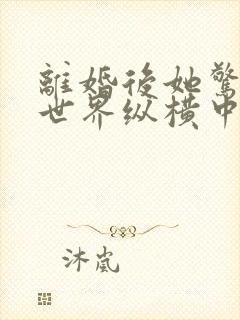 離婚後她驚
世界纵横中
沐嵐